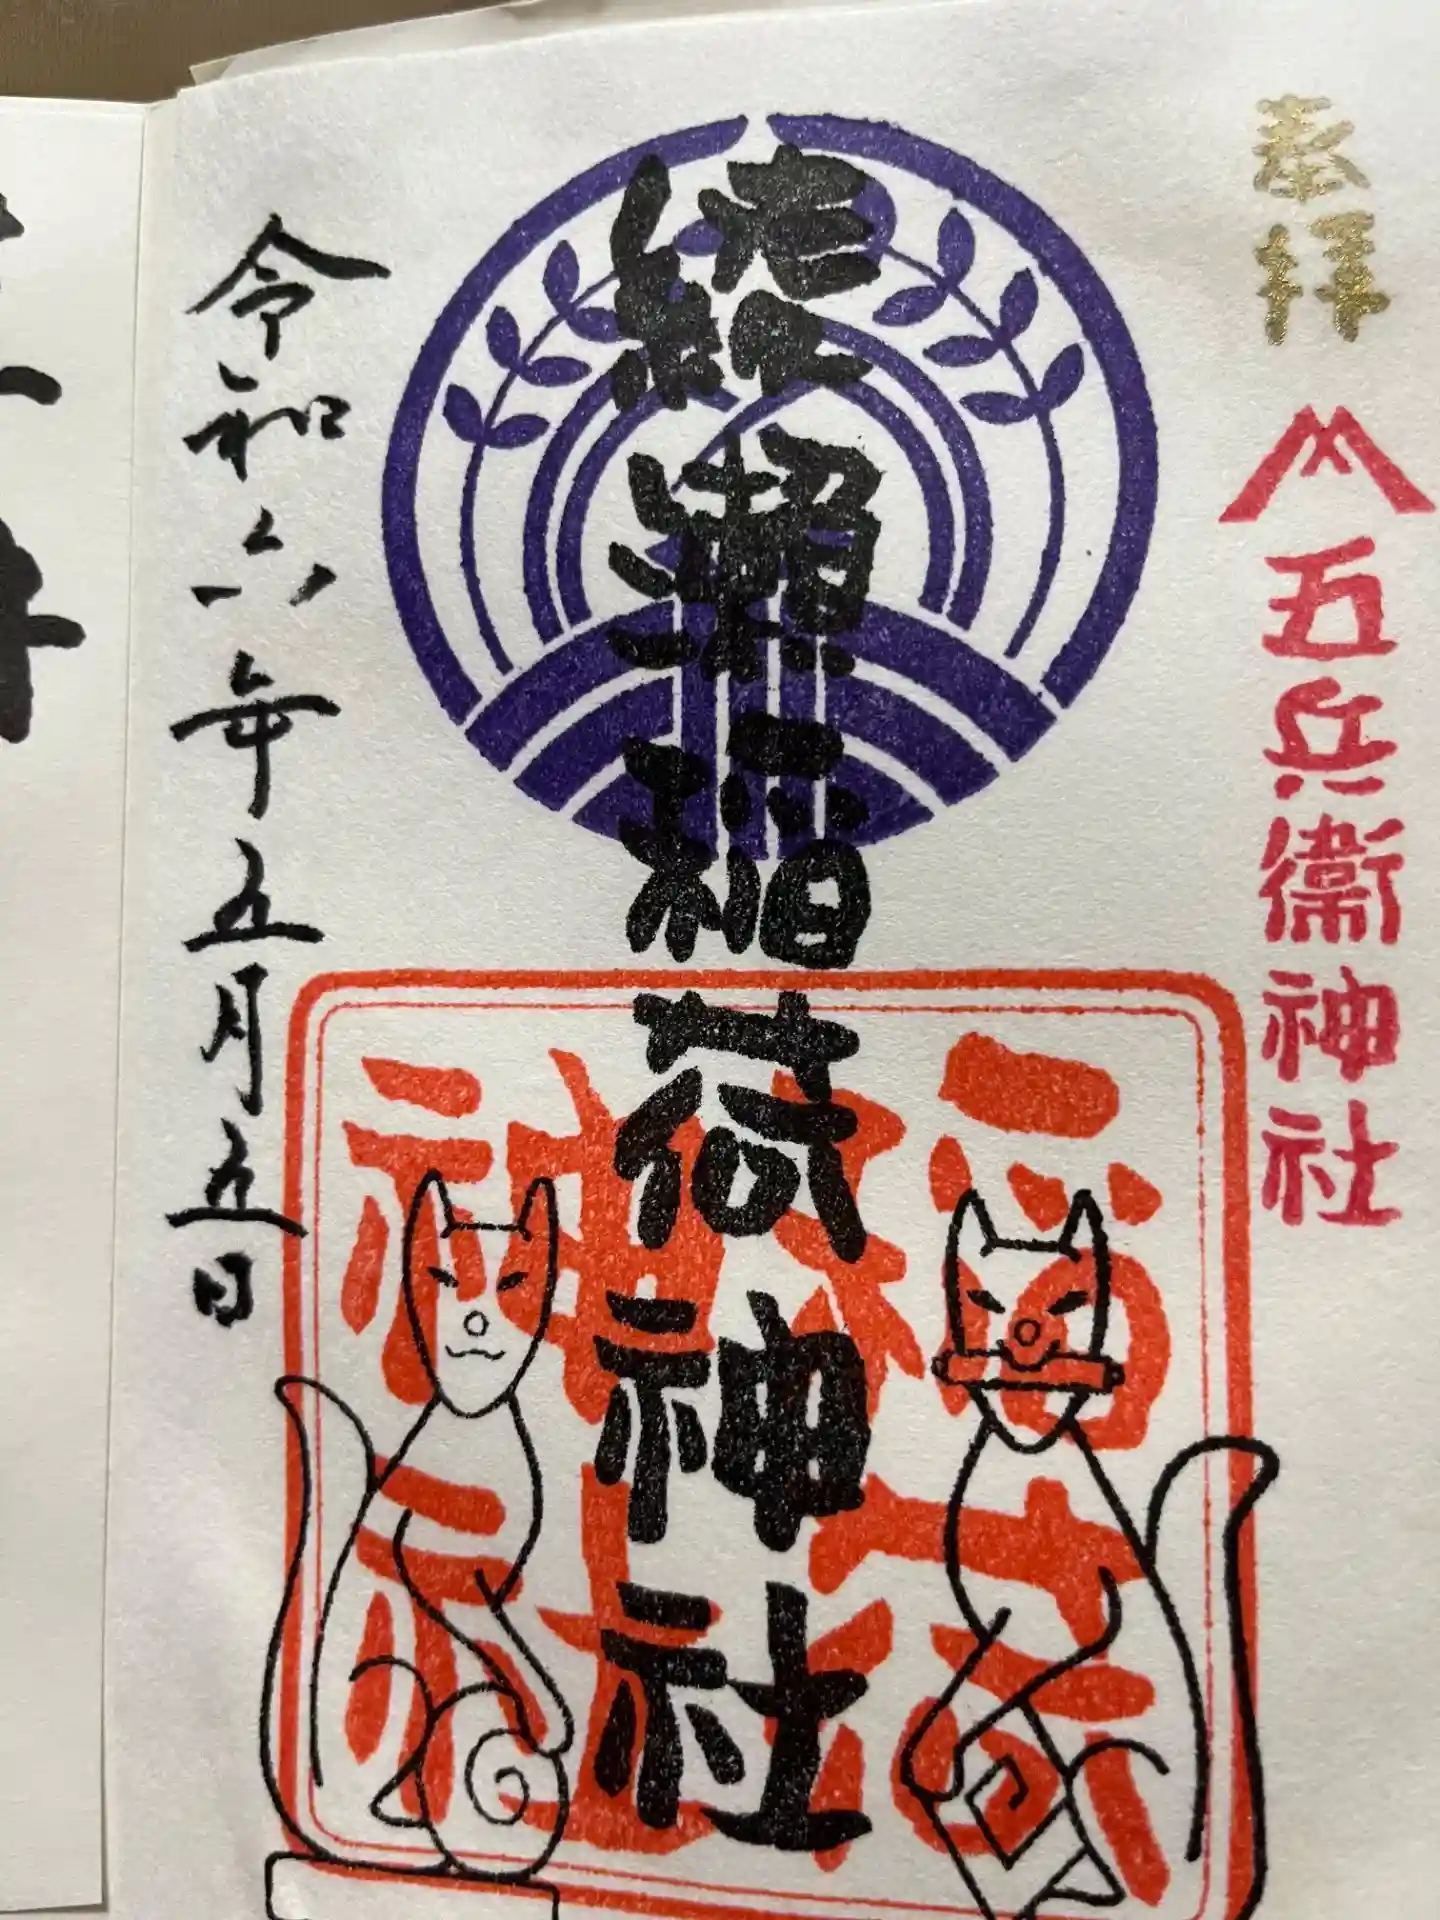 奉拝
五兵衛神社
綾瀬稲荷神社
稲荷
神社
令和六年五月五日